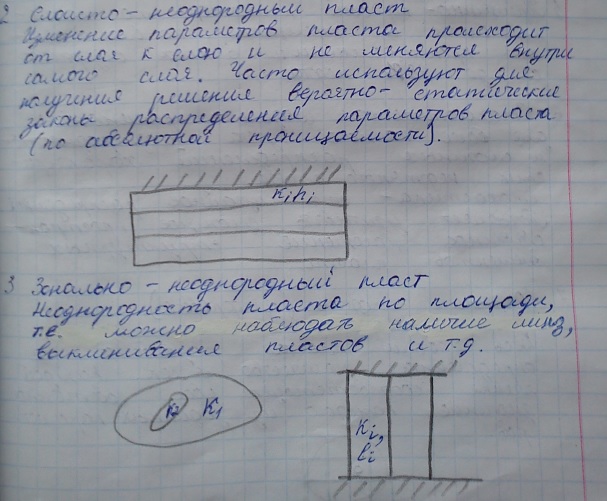 2 Слоисто-неоднородный пласт
Изменение параметров пласта происходит
от слоя к слою и не меняются внутри
самого слоя. Часто используют для
получения решения вероятно-статические
законы распределения параметров пласта
(по абсолютной проницаемости).
Kihi
3 Зонально-неоднородный пласт
Неоднородность пласта по площади,
т.е. можно наблюдать наличие линз,
выклинивания пластов и т.д.
K2 K1
Ki,
li